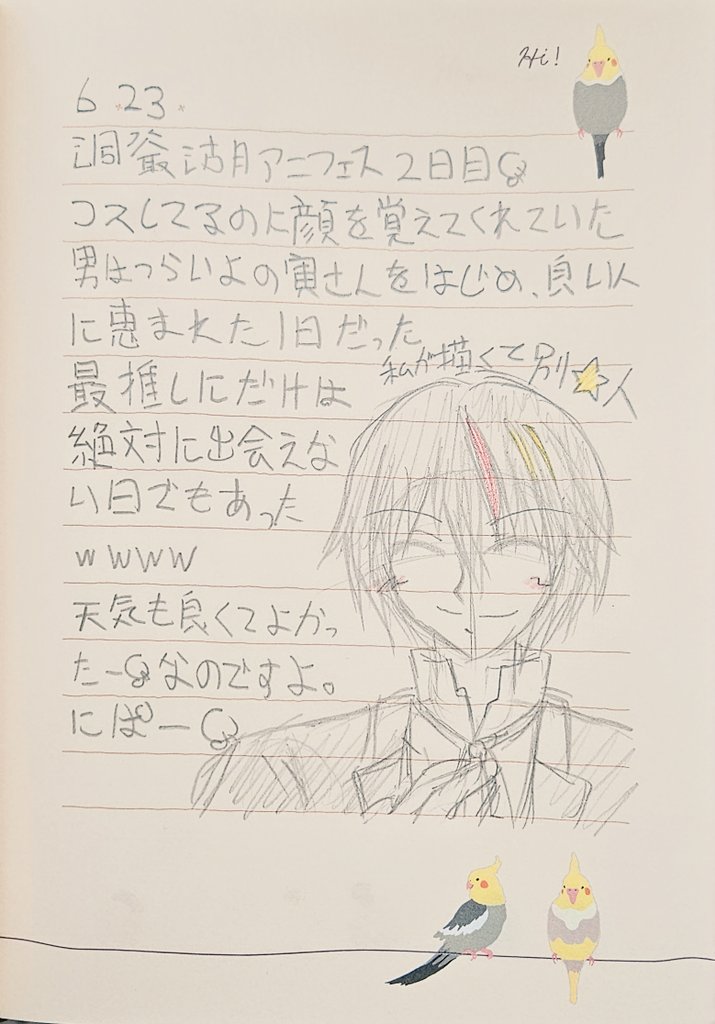 Hi!
6 23
洞爺湖アニフェス2日目
コスしてるのに顔を覚えてくれていた
男はつらいよの寅さんをはじめ、良い人
に恵まれた1日だった
私が描くて別☆人
最推しにだけは
絶対に出会えな
い日でもあった
wwww
天気も良くてよかっ
たー なのですよ。
にぱー